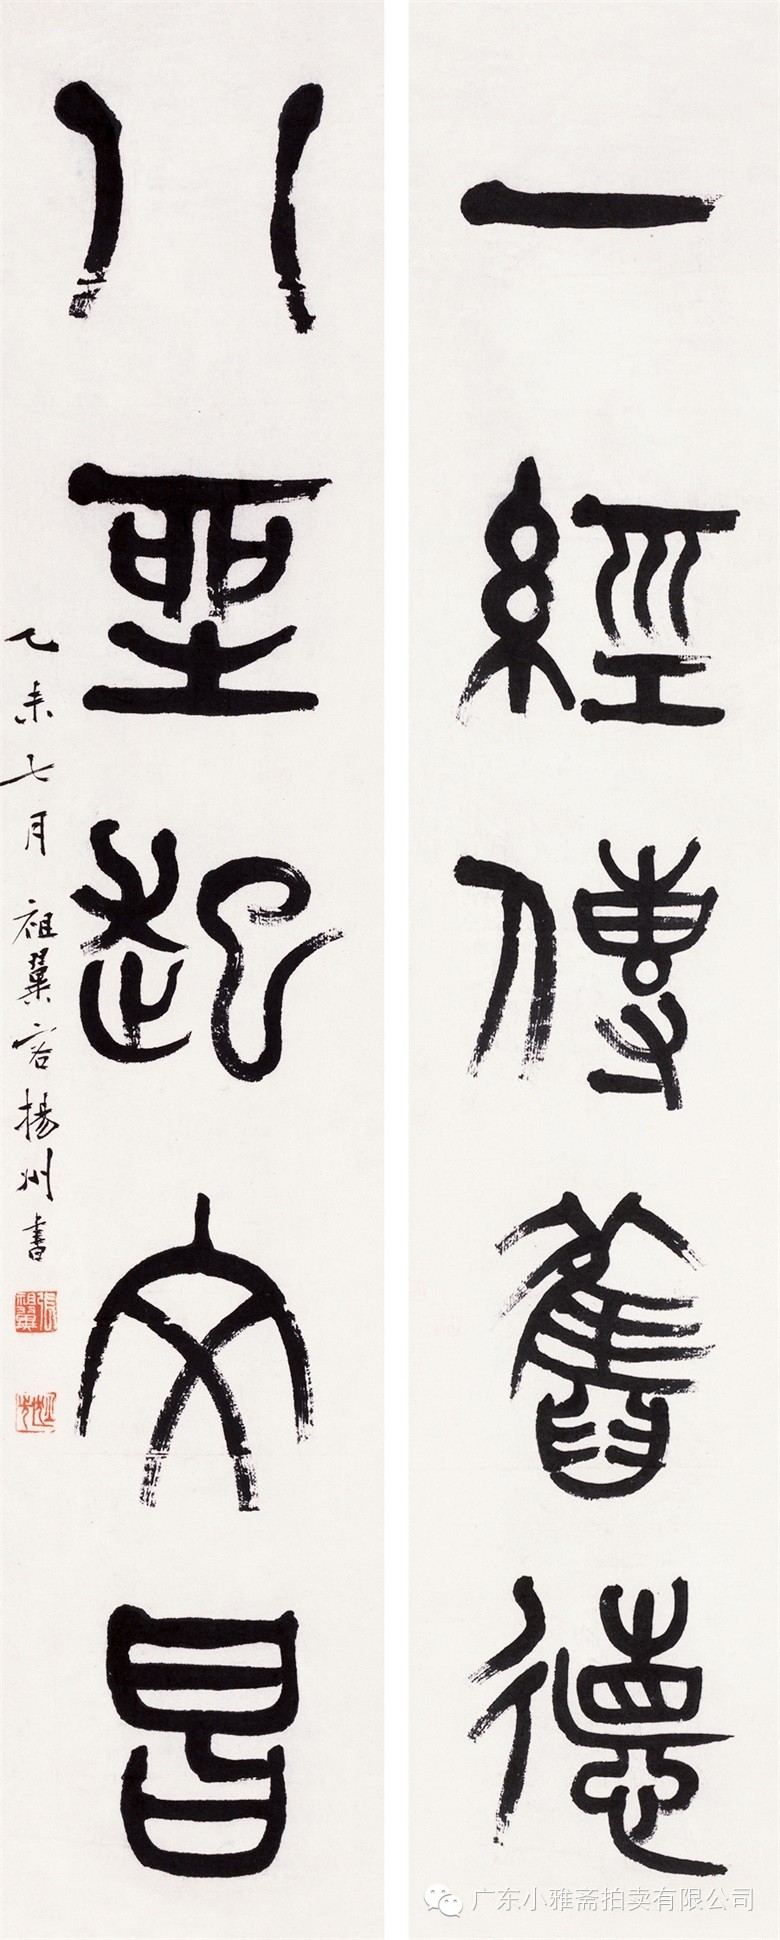 一經傳舊德
八坐起文昌
乙未七月祖翼客揚州書
張祖翼
广东小雅斋拍卖有限公司